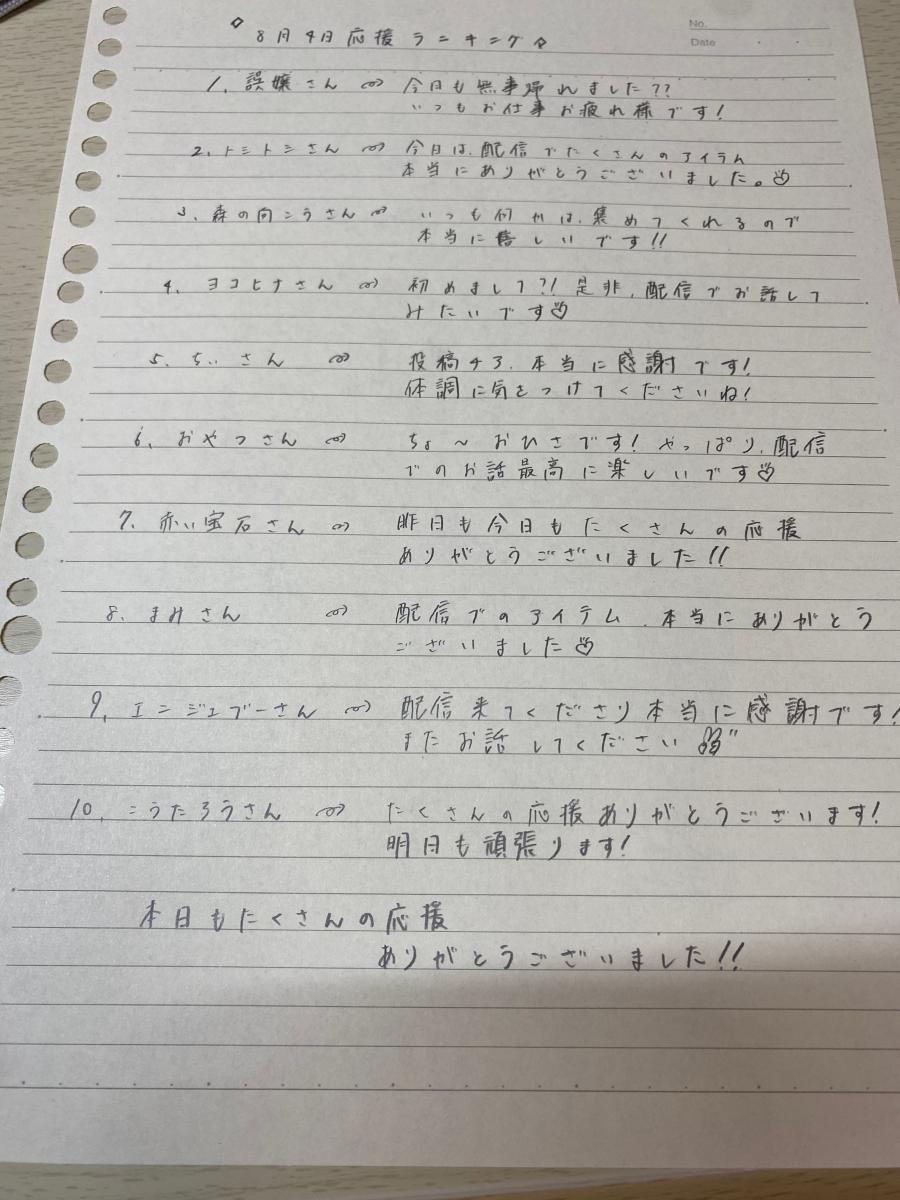 No.
Date
◇ 8月4日応援ランキング◇
1. 誤嬢さん ⇨ 今日も無事帰れました??
いつもお仕事お疲れ様です!
2. トミトミさん ⇨ 今日は、配信でたくさんのアイテム
本当にありがとうございました。♡
3. 森の向こうさん ⇨ いつも何かは、集めてくれるので
本当に嬉しいです!!
4. ヨコヒナさん ⇨ 初めまして?! 是非、配信でお話して
みたいです♡
5. ちぃさん ⇨ 投稿チヌ、本当に感謝です!
体調に気をつけてくださいね!
6. おやつさん ⇨ ちょ〜おひさです! やっぱり、配信
でのお話最高に楽しいです♡
7. 赤い宝石さん ⇨ 昨日も今日もたくさんの応援
ありがとうございました!!
8. まみさん ⇨ 配信でのアイテム、本当にありがとう
ございました♡
9. エンジェブーさん ⇨ 配信来てくださり本当に感謝です!
またお話してください
10. こうたろうさん ⇨ たくさんの応援ありがとうございます!
明日も頑張ります!
本日もたくさんの応援
ありがとうございました!!